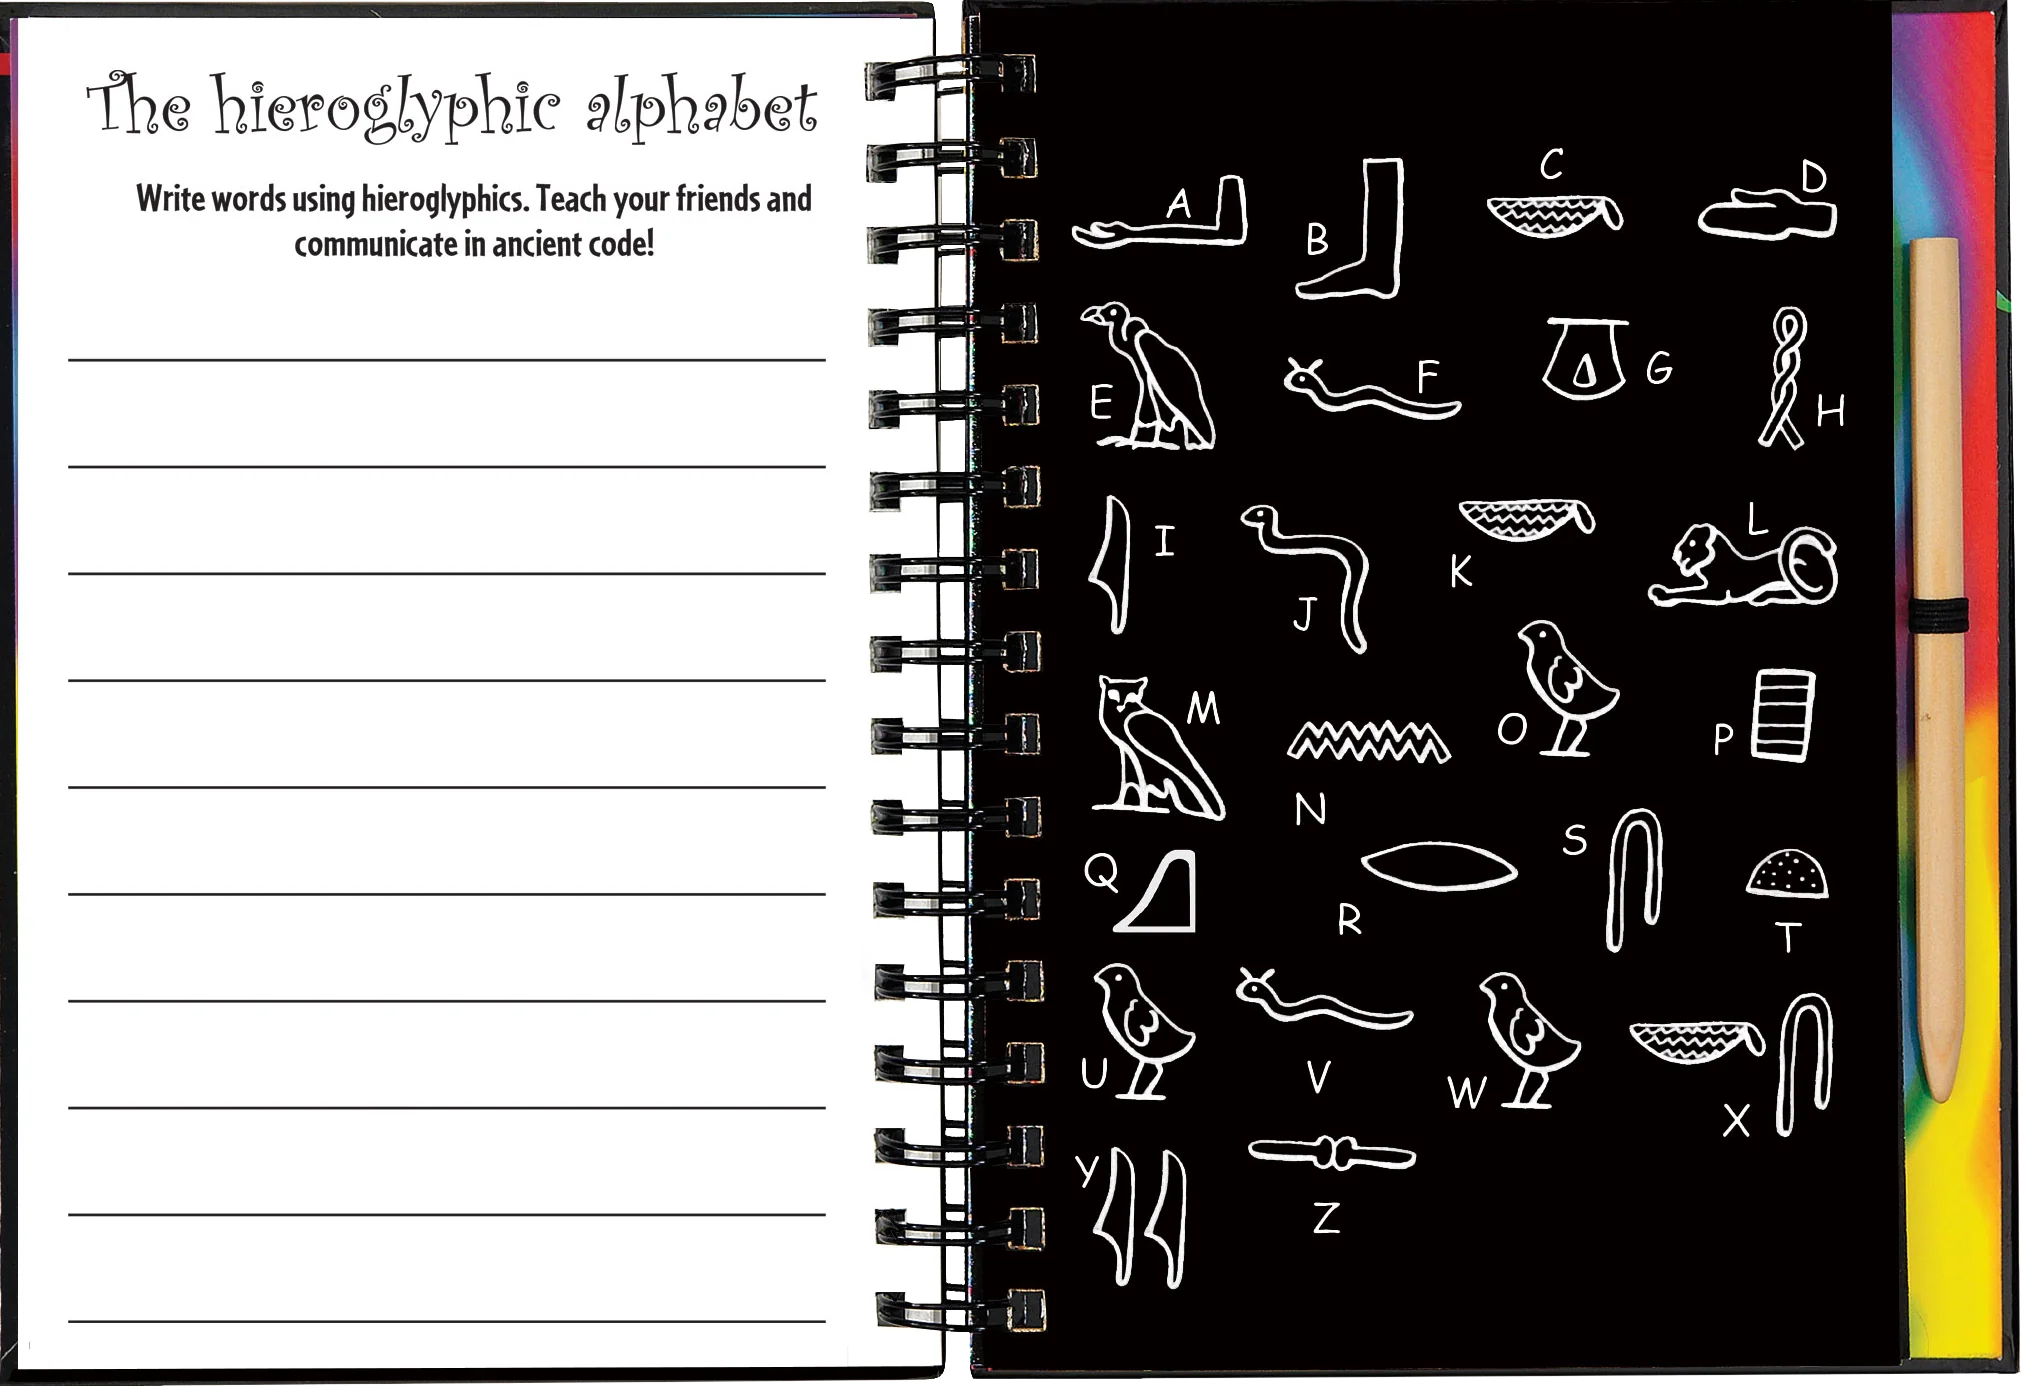 The hieroglyphic alphabet
Write words using hieroglyphics. Teach your friends and
communicate in ancient code!
A B C D
E F G H
I J K L
M N O P
Q R S T
U V W X
Y Z